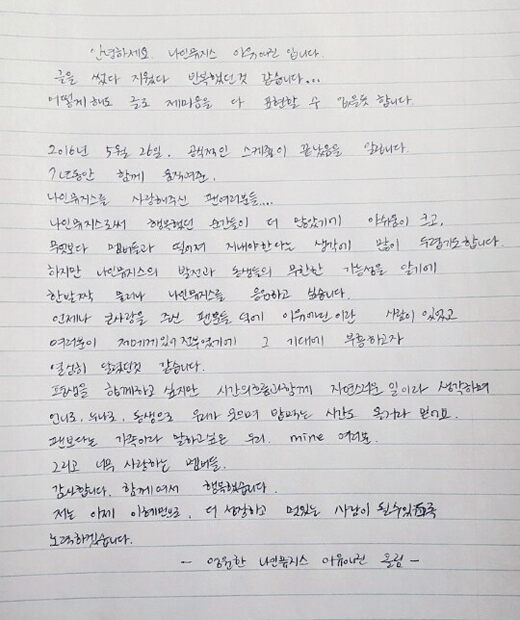 안녕하세요. 나인뮤지스 이유애린 입니다.
글을 썼다 지웠다 반복했던것 같습니다...
어떻게 해도 글로 제마음을 다 표현할 수 없을듯 합니다.
2016년 5월 26일, 공식적인 스케줄이 끝났음을 알립니다.
7년동안 함께 움직여준,
나인뮤지스를 사랑해주신 팬여러분들...
나인뮤지스로써 행복했던 순간들이 더 많았기에 아쉬움이 크고,
무엇보다 멤버들과 떨어져 지내야한다는 생각에 많이 두렵기도합니다.
하지만 나인뮤지스의 발전과 동생들의 무한한 가능성을 알기에
한발짝 물러나 나인뮤지스를 응원하고 싶습니다.
언제나 큰사랑을 주신 팬분들 덕에 이유애린이란 사람이 있었고
여러분이 저에게 있어 전부였기에 그 기대에 부흥하고자
열심히 달렸던것 같습니다.
평생을 함께하고 싶지만 시간의흐름과함께 자연스러운 일이라 생각하며
언니로, 누나로, 동생으로 우리가 웃으며 밥먹는 시간도 올거라 믿어요.
팬보다는 가족이라 말하고싶은 우리. mine 여러분.
그리고 너무 사랑하는 멤버들.
감사합니다. 함께여서 행복했습니다.
저는 이제 이혜민으로, 더 성장하고 멋있는 사람이 될수있도록
노력하겠습니다.
- 영원한 나인뮤지스 이유애린 올림 -